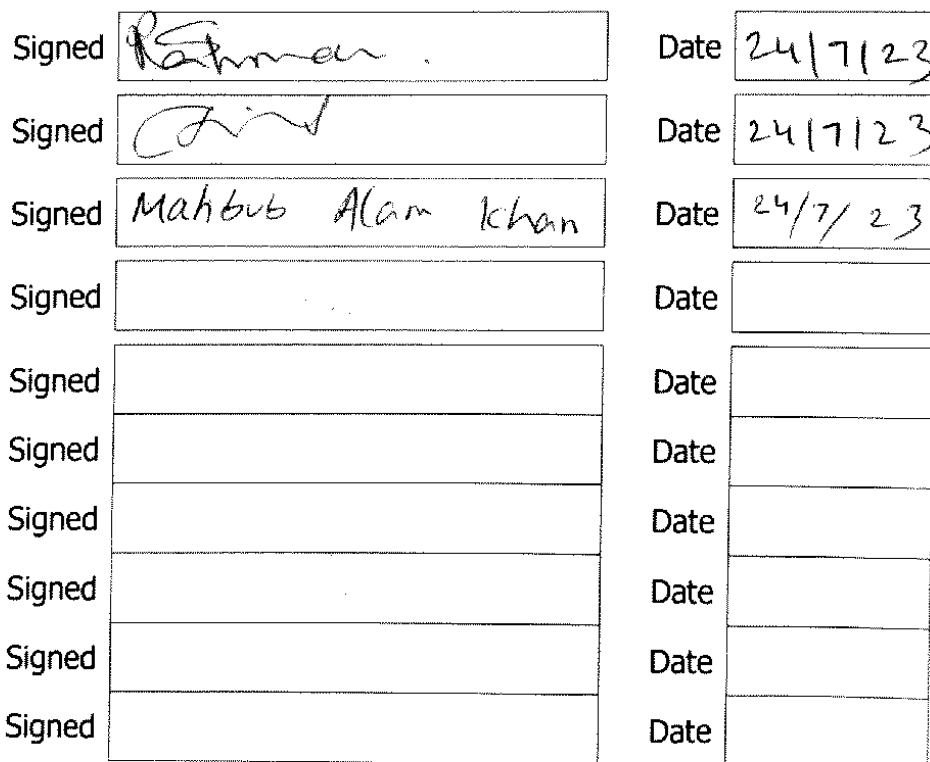 Signed Rahman . Date 24/7/23
Signed Date 24/7/23
Signed Mahbub Alam Khan Date 24/7/23
Signed Date
Signed Date
Signed Date
Signed Date
Signed Date
Signed Date
Signed Date